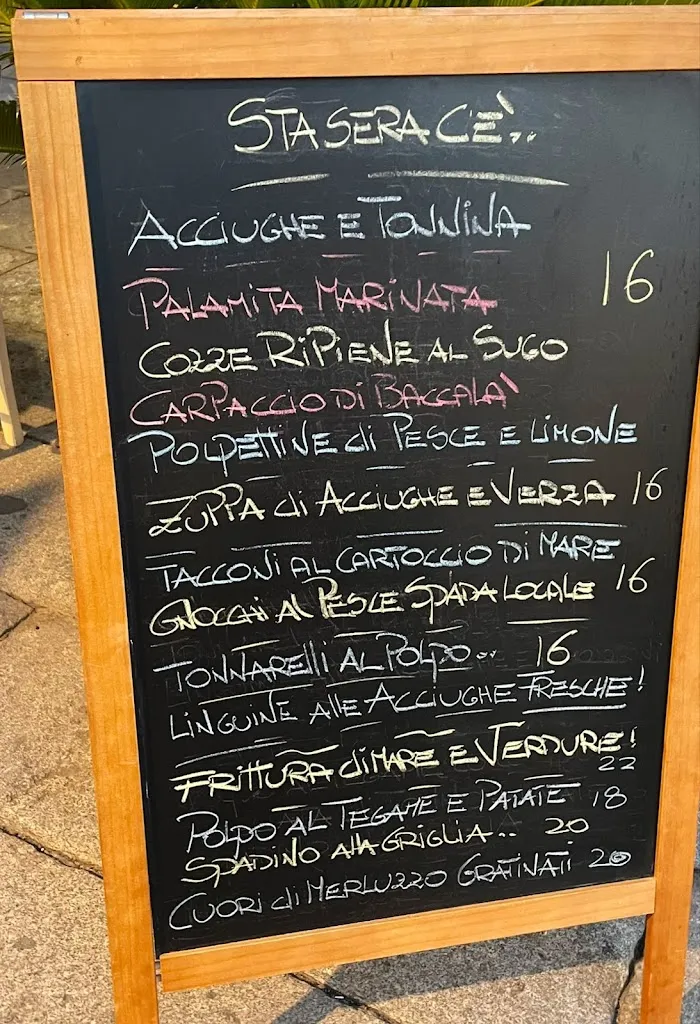 STASERA C'È...
ACCIUGHE E TONNINA
PALAMITA MARINATA 16
COZZE RIPIENE AL SUGO
CARPACCIO DI BACCALA'
POLPETTINE di PESCE E LIMONE
ZUPPA di ACCIUGHE E VERZA 16
TACCONI AL CARTOCCIO DI MARE
GNOCCHI AL PESCE SPADA LOCALE 16
TONNARELLI AL POLPO.. 16
LINGUINE ALLE ACCIUGHE FRESCHE!
FRITTURA di MARE E VERDURE! 22
POLPO AL TEGAME E PATATE 18
SPADINO ALLA GRIGLIA.. 20
CUORI di MERLUZZO GRATINATI 20